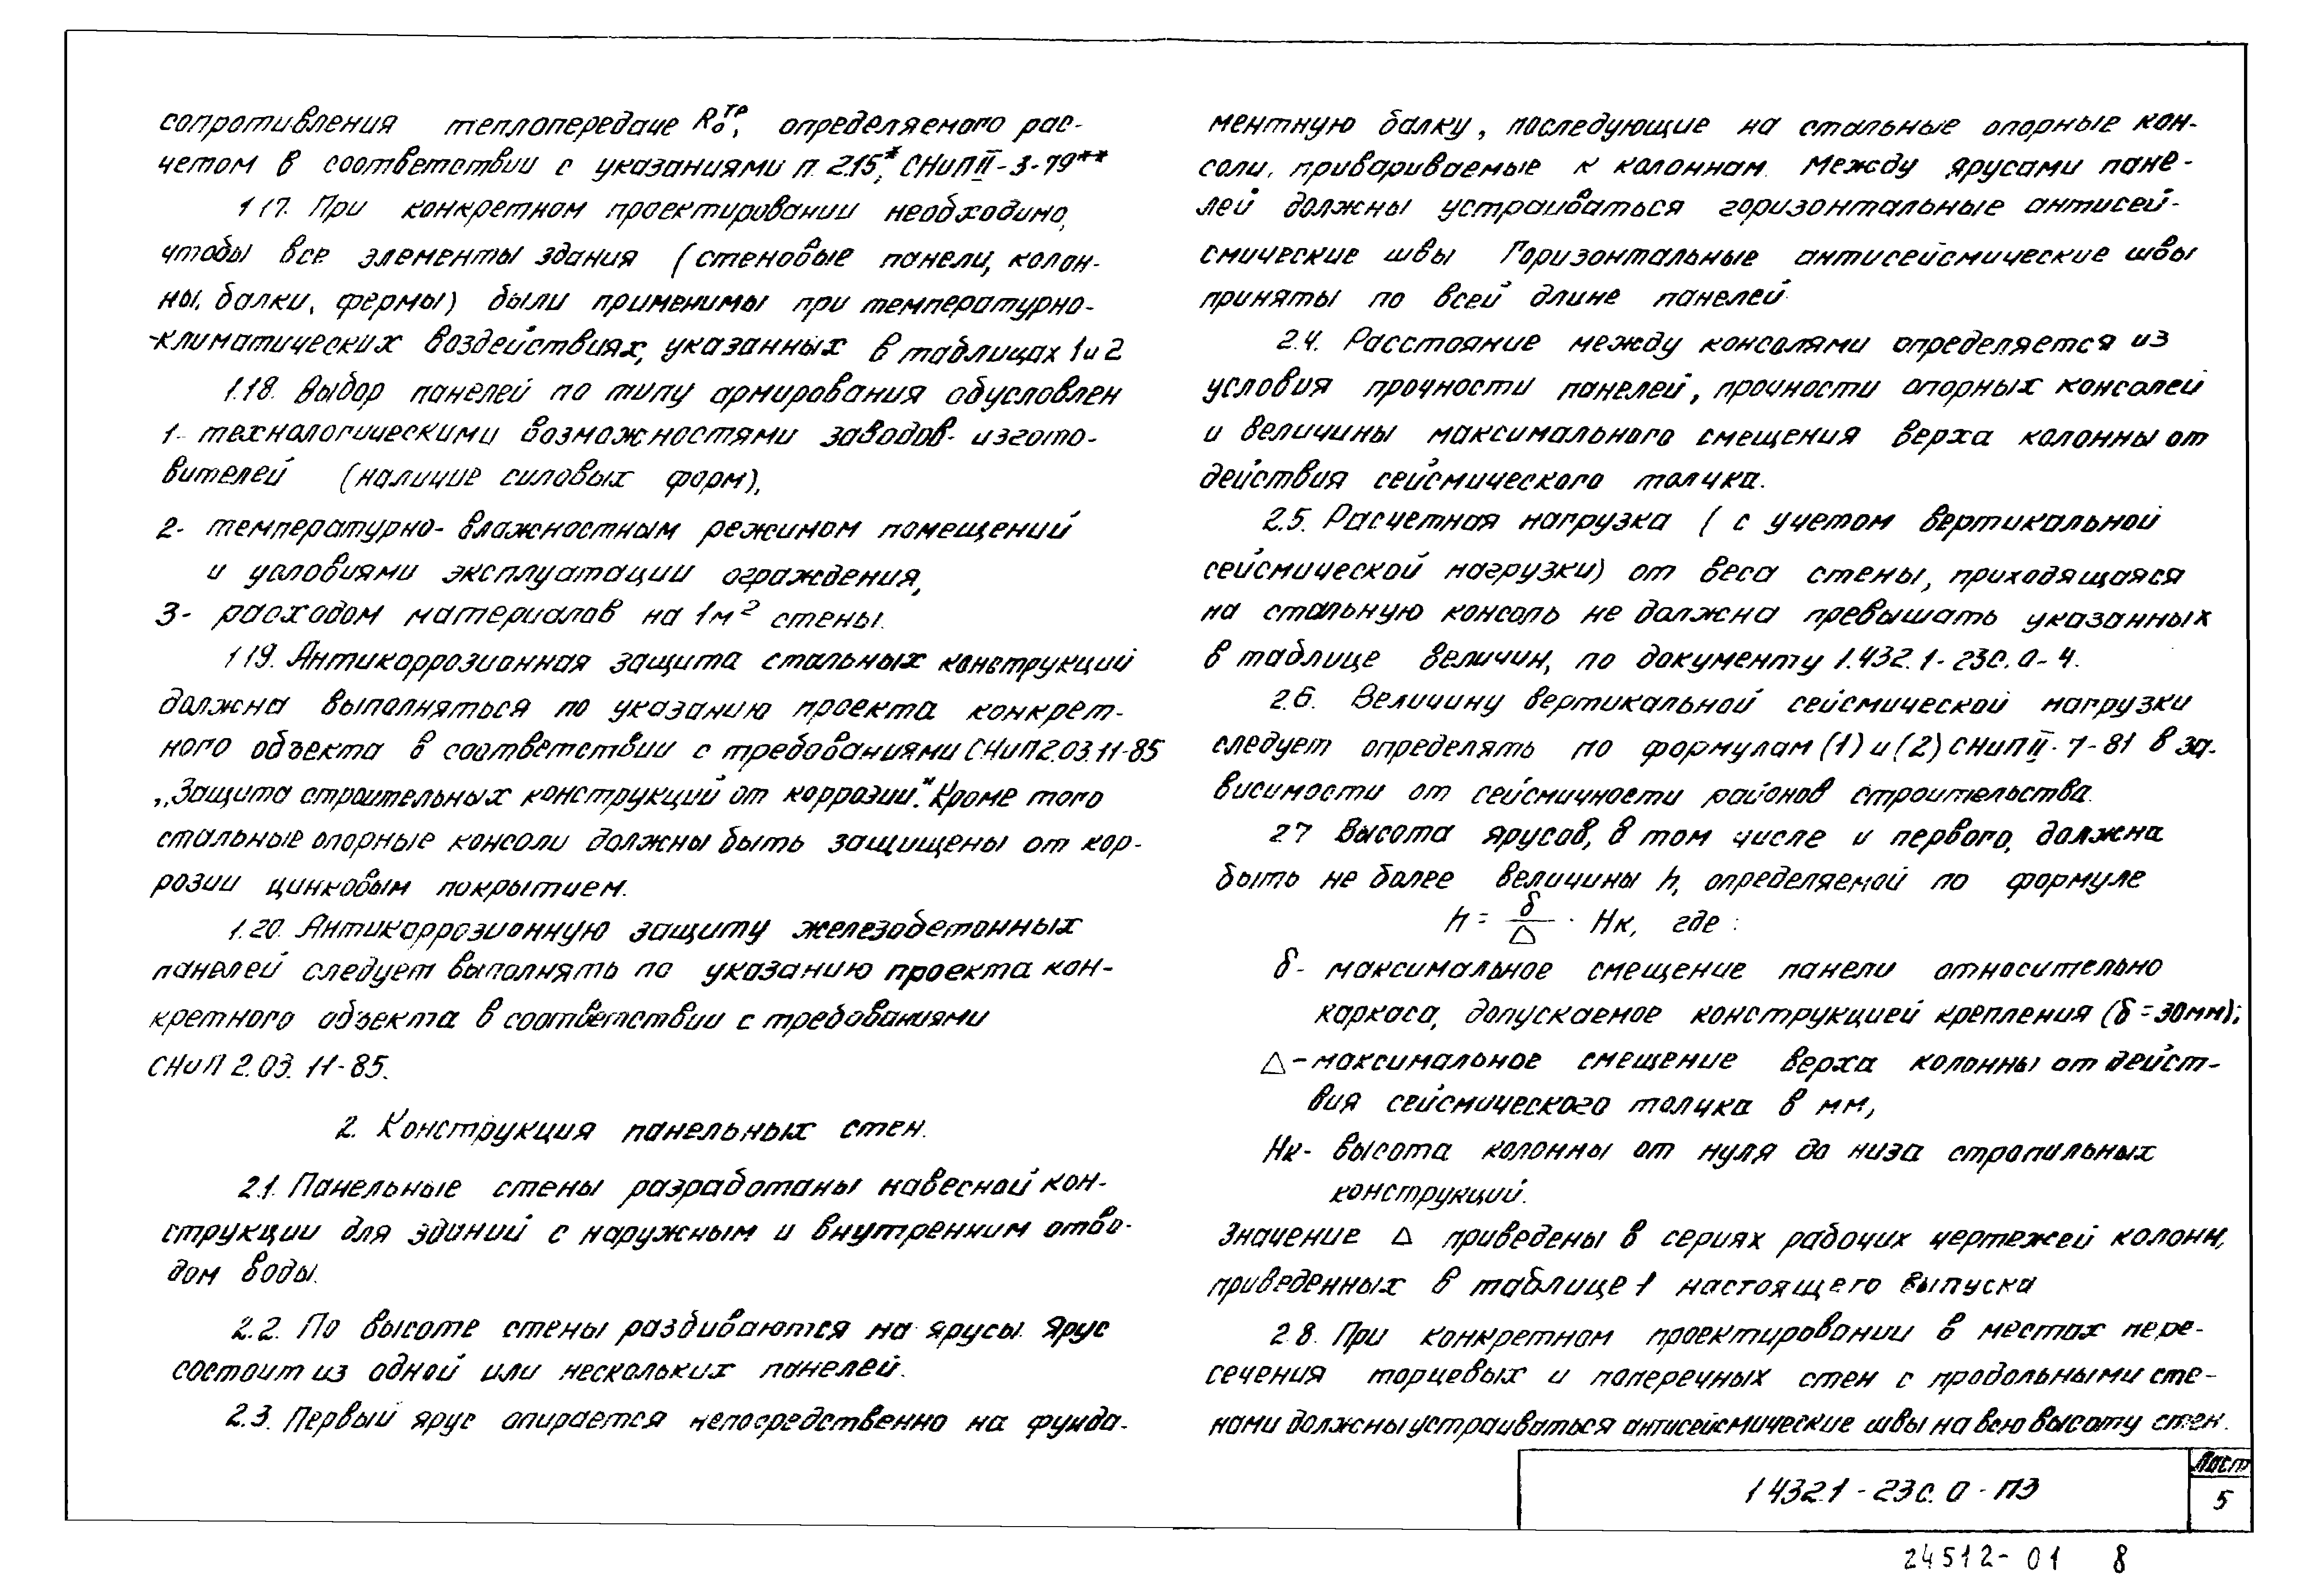 сопротивления теплопередаче R₀ᵀᴾ, определяемого рас-
четом в соответствии с указаниями п. 2.15*, СНиП II-3-79**
1 17. При конкретном проектировании необходимо,
чтобы все элементы здания (стеновые панели, колон-
ны, балки, фермы) были применимы при температурно-
-климатических воздействиях, указанных в таблицах 1 и 2
1.18. Выбор панелей по типу армирования обусловлен
1- технологическими возможностями заводов- изгото-
вителей (наличие силовых форм),
2- температурно- влажностным режимом помещений
и условиями эксплуатации ограждения,
3- расходом материалов на 1м² стены.
1 19. Антикоррозионная защита стальных конструкций
должна выполняться по указанию проекта конкрет-
ного объекта в соответствии с требованиями СНиП 2.03.11-85
„Защита строительных конструкций от коррозии". Кроме того
стальные опорные консоли должны быть защищены от кор-
розии цинковым покрытием.
1.20. Антикоррозионную защиту железобетонных
панелей следует выполнять по указанию проекта кон-
кретного объекта в соответствии с требованиями
СНиП 2.03.11-85.
2. Конструкция панельных стен.
2.1. Панельные стены разработаны навесной кон-
струкции для зданий с наружным и внутренним отво-
дом воды.
2.2. По высоте стены разбиваются на ярусы. Ярус
состоит из одной или нескольких панелей.
2.3. Первый ярус опирается непосредственно на фунда-
ментную балку, последующие на стальные опорные кон-
соли, привариваемые к колоннам. Между ярусами пане-
лей должны устраиваться горизонтальные антисей-
смические швы Горизонтальные антисейсмические швы
приняты по всей длине панелей.
2.4. Расстояние между консолями определяется из
условия прочности панелей, прочности опорных консолей
и величины максимального смещения верха колонны от
действия сейсмического толчка.
2.5. Расчетная нагрузка ( с учетом вертикальной
сейсмической нагрузки) от веса стены, приходящаяся
на стальную консоль не должна превышать указанных
в таблице величин, по документу 1.432.1-23С.0-4.
2.6. Величину вертикальной сейсмической нагрузки
следует определять по формулам (1) и (2) СНиП II-7-81 в за-
висимости от сейсмичности районов строительства.
2 7 Высота ярусов, в том числе и первого, должна
быть не более величины h, определяемой по формуле
h = δ/Δ · Нк, где :
δ- максимальное смещение панели относительно
каркаса, допускаемое конструкцией крепления (δ=30мм);
Δ - максимальное смещение верха колонны от дейст-
вия сейсмического толчка в мм,
Нк- высота колонны от нуля до низа стропильных
конструкций.
Значение Δ приведены в сериях рабочих чертежей колонн,
приведенных в таблице 1 настоящего выпуска
2.8. При конкретном проектировании в местах пере-
сечения торцевых и поперечных стен с продольными сте-
нами должны устраиваться антисейсмические швы на всю высоту стен.
1 432.1 - 23С. 0 - ПЗ
Лист
5
24512-01 8